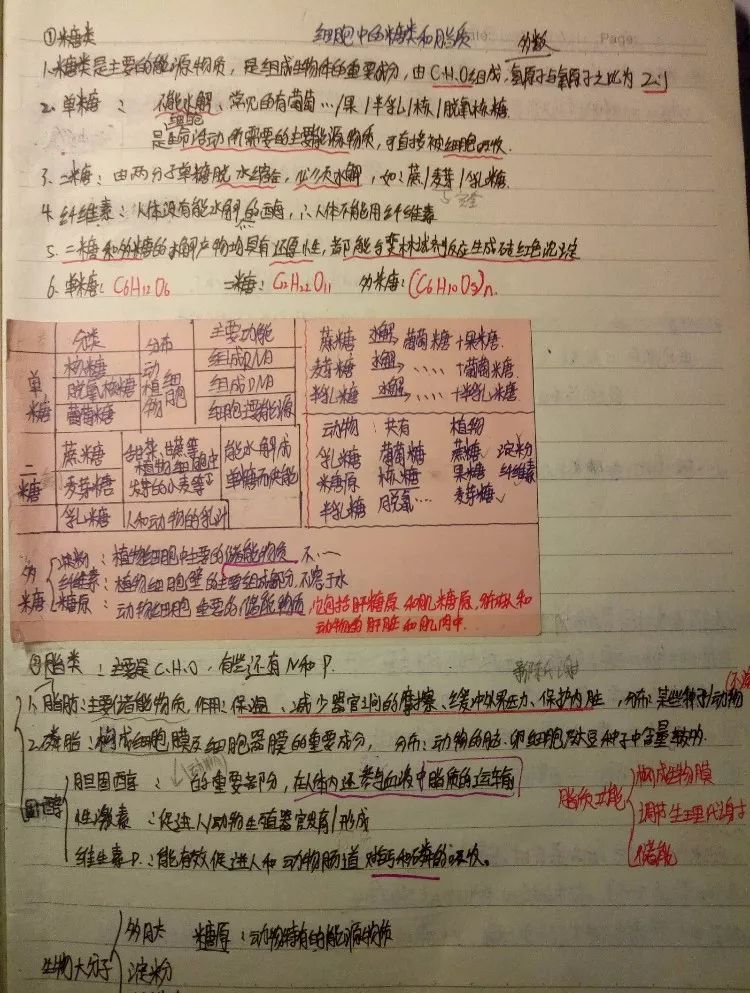 细胞中的糖类和脂质
①糖类 多数
1.糖类是主要的能源物质，是组成生物质的重要成分，由C.H.O组成，氢原子与氧原子之比为2:1
2.单糖：不能水解，常见的有葡萄…/果/半乳/核/脱氧核糖
细胞
是生命活动所需要的主要能源物质，可直接被细胞吸收.
3.二糖：由两分子单糖脱水缩合，必须水解，如：蔗/麦芽/乳糖
4.纤维素：人体没有能水解的酶，∴人体不能用纤维素
5.二糖和多糖的水解产物均具有还原性，都能与斐林试剂反应生成砖红色沉淀
6.单糖：C6H12O6 二糖：C12H22O11 多糖：(C6H10O5)n.
单糖
分类 分布 主要功能
核糖 动植物细胞 组成RNA
脱氧核糖 组成DNA
葡萄糖 细胞主要能源
二糖
蔗糖 甜菜、甘蔗等植物细胞中 能水解成单糖而供能
麦芽糖 发芽的小麦等
乳糖 人和动物的乳汁
蔗糖 水解→ 葡萄糖+果糖
麦芽糖 水解→ ‥‥ +葡萄糖
半乳糖 水解→ ‥‥ +半乳糖
动物 共有 植物
乳糖 葡萄糖 蔗糖 淀粉
糖原 核糖 果糖 纤维素
半乳糖 脱氧‥‥ 麦芽糖
多糖
淀粉：植物细胞中主要的储能物质 不…
纤维素：植物细胞壁的主要组成部分，不溶于水
糖原：动物细胞重要的储能物质，包括肝糖原和肌糖原，分布人和
动物的肝脏和肌肉中.
②脂类：主要是C.H.O，有些还有N和P.
1.脂肪：主要储能物质，作用：保温、减少器官之间的摩擦、缓冲外界压力、保护内脏，分布：某些种子/动物
2.磷脂：构成细胞膜及细胞器膜的重要成分，分布：动物的脑.卵细胞及大豆种子中含量较多.
固醇
胆固醇：的重要部分，在人体内还参与血液中脂质的运输
动物
性激素：促进人/动物生殖器官发育/形成
维生素D：能有效促进人和动物肠道对钙和磷的吸收。
脂质功能
构成生物膜
调节生理代谢
储能
生物大分子
多肽 糖原：动物特有的能源物质
淀粉